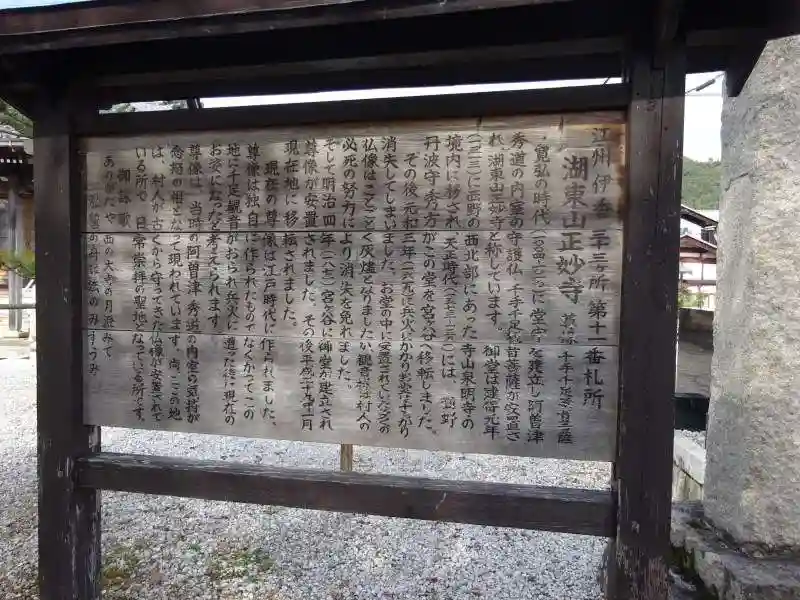 江州伊香三十三ヶ所 第十一番札所
湖東山正妙寺 千手千足観音菩薩
寛弘の時代(一〇〇四〜一〇一二)に堂宇を建立し阿曽津
秀道の内室の守護仏 千手千足観音菩薩が安置さ
れ、湖東山正妙寺と称しています。御堂は建保元年
(一二一三)に西野の西北部にあった寺山泉明寺の
境内に移され 天正時代(一五七三〜)には、西野
丹波守秀方がこの堂を宮ヶ谷へ移転しました。
その後、元和三年(一六一九)に兵火にかかり堂宇すっかり
消失してしまいました。お堂の中に安置されていた多くの
仏像はことごとく灰燼となりましたが観音様は村人の
必死の努力により消失を免れました。
そして明治四年(一八七一)宮ヶ谷に御堂が建立され
尊像が安置されました。その後平成二十九年十一月
現在地に移転されました。
現在の尊像は江戸時代に作られました、
尊像は独自に作られたものでなくかつてこの
地に千足観音がおられ兵火に遭った後に現在の
お姿になったと考えられます。
尊像は、当時の阿曽津 秀道の内室の気持が
念持の相となって現われています。尚、ここの地
は、村人が古くから守ってきた仏像が安置されて
いる所で、日常崇拝の聖地となっている所です。
御詠歌
西の大寺の月